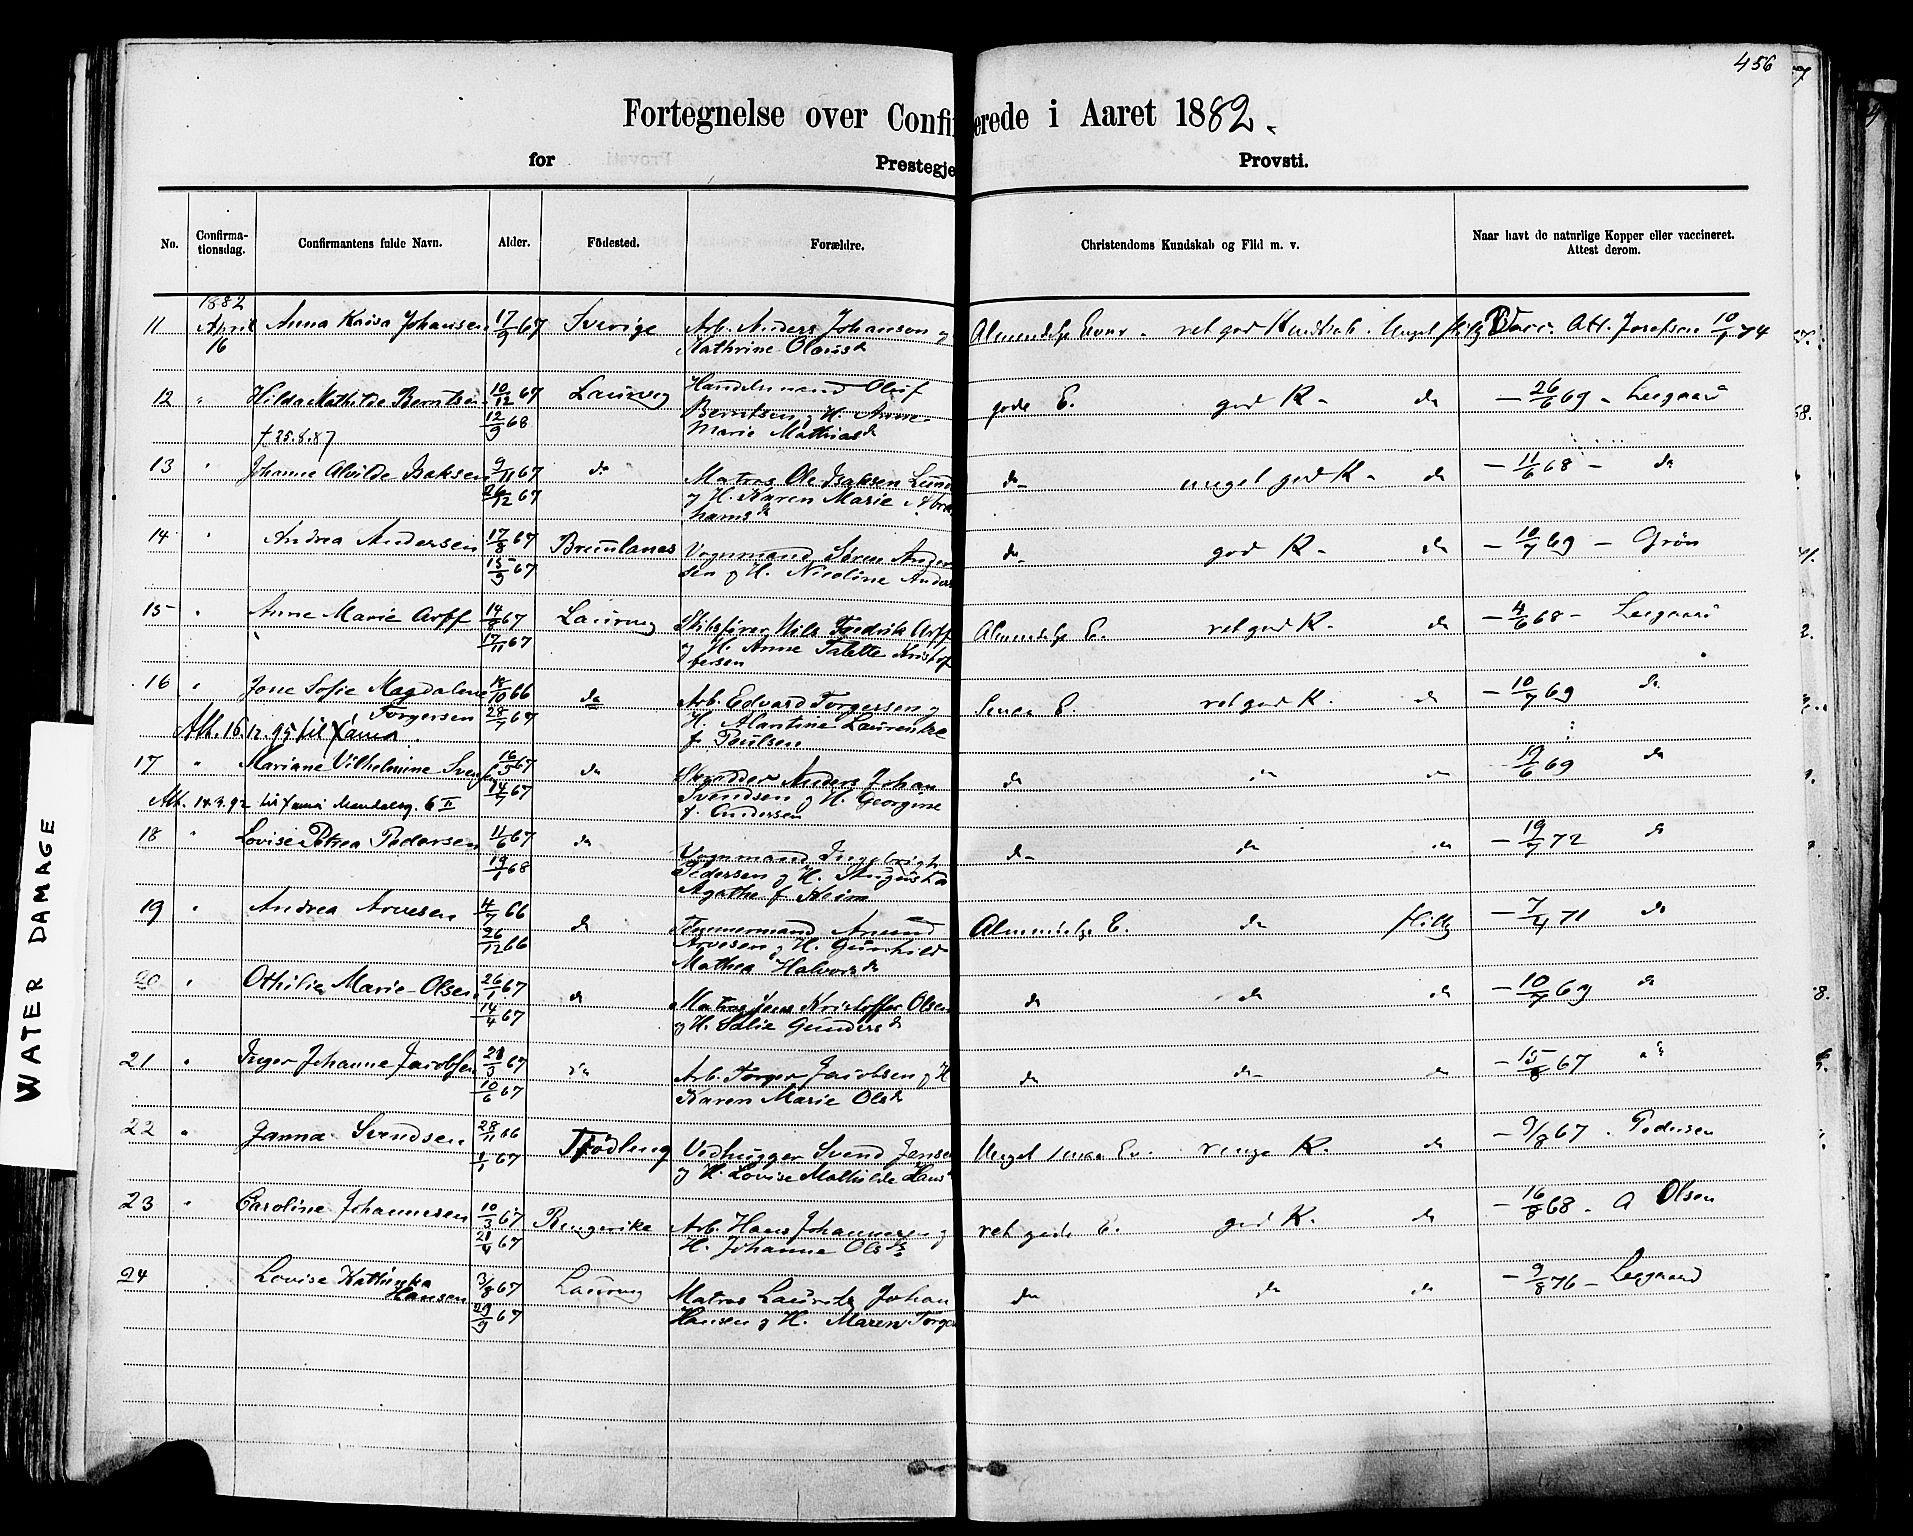 456
Fortegnelse over Confirmerede i Aaret 1882.
for Prestegje Provsti.
No. Confirma-tionsdag. Confirmantens fulde Navn. Alder. Födested. Forældre. Christendoms Kundskab og Flid m. v. Naar havt de naturlige Kopper eller vaccineret. Attest derom.
1882
11 April 16 Anna Kaisa Johansen 17/9 67 Sverige Arb. Anders Johanson og Almindelige Evner - ret god Kundskab. Meget flittig Vacc. Att. Josefsen 10/1 74
Kathrine Olausd
12 " Hilda Mathilde Berntsen 10/12 67 Laurvig Handelsmand Oluf gode E. god K - do - 26/6 69 - Leegaard
12/9 68 Berntsen og H. Anne
† 25.8.87 Marie Mathiasd
13 " Johanne Alvilde Isaksen 9/11 67 do Matros Ole Isaksen Lund do - meget god K - do - 11/6 68 - do
26/12 67 og H. Karen Marie Abra
hamsd
14 " Andrea Andersen 17/8 67 Brunlanes Vognmand Sören Ander do - god K - do - 10/7 69 - Grön
15/9 67 sen og H. Nicoline Anders
15 " Anne Marie Arff 14/8 67 Laurvig Skibsförer Nils Fredrik Arff Almindelige E. ret god K - do - 4/6 68 - Leegaard
17/11 67 og H. Anne Talette Kristof
fersen
16 " Jone Sofie Magdalene 18/10 66 do Arb. Edvard Torgersen og Smaa E. ret god K. do - 10/7 69 do
Torgersen 28/7 67 H. Alantine Laurentze
Att. 16.12.95 til f. Poulsen
17 " Mariane Vilhelmine Svendsen 16/5 67 do Skrædder Anders Johan do do do 19/6 69 do
14/7 67 Svendsen og H. Georgine
Att. 14.3.92 til f. Andersen
18 " Lovise Petrea Pedersen 11/6 67 do Vognmand Ingebrigt do - do do - 19/7 72 do
19/1 68 Pedersen og H. Augusta
Agathe f. Heim
19 " Andrea Arvesen 4/7 66 do Tömmermand Amund Almindelige E. do flittig - 7/4 71 do
26/12 66 Arvesen og H. Gunhild
Mathea Halvorsd
20 " Othilie Marie Olsen 26/1 67 do Matros Jens Kristoffer Olsen do do do - 10/7 69 do
14/4 67 og H. Salie Gundersd
21 " Inger Johanne Jacobsen 21/3 67 do Arb. Torger Jacobsen og H do do - do - 15/8 67 do
10/6 67 Karen Marie Olsd
22 " Janna Svendsen 28/11 66 Tjödling Vedhugger Svend Jense Meget smaa Ev. ringe K. do - 9/8 67 . Pedersen
1/1 67 og H. Lovise Mathilde Hans
23 " Caroline Johannesen 10/3 67 Ringerike Arb. Hans Johannesen og ret gode E. god K. do - 16/8 68 - A Olsen
21/4 67 H. Johanne Olsd
24 Lovise Kathinka 3/8 67 Laurvig Matros Lauritz Johan do do do - 9/8 76 - Leegaard
Hansen 29/9 67 Hansen og H. Maren Torger
WATER DAMAGE